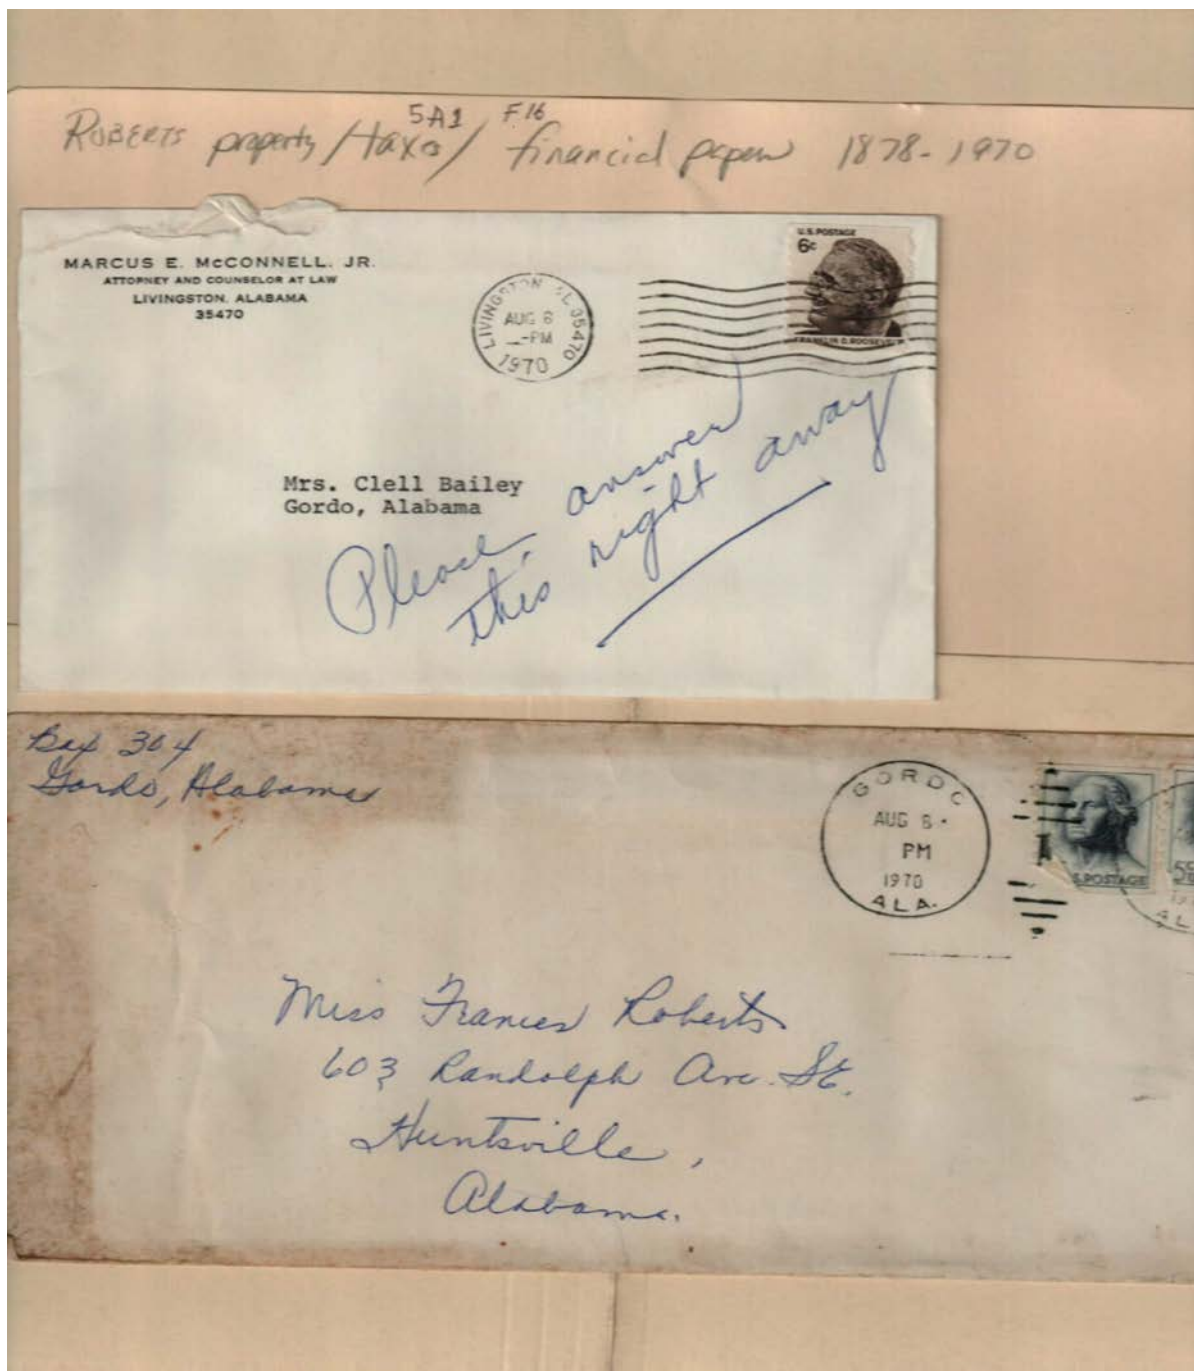 5A1 F16
ROBERTS property/taxes/ financial papers 1878-1970
MARCUS E. McCONNELL, JR.
ATTORNEY AND COUNSELOR AT LAW
LIVINGSTON, ALABAMA
35470
LIVINGSTON AL 35470
AUG 6
PM
1970
U.S. POSTAGE
6c
FRANKLIN D. ROOSEVELT
Mrs. Clell Bailey
Gordo, Alabama
Please answer
this right away
Box 304
Gordo, Alabama
GORDO
AUG 8
PM
1970
ALA.
S. POSTAGE
5c
AL
Miss Frances Roberts
603 Randolph Ave. SE.
Huntsville,
Alabama.